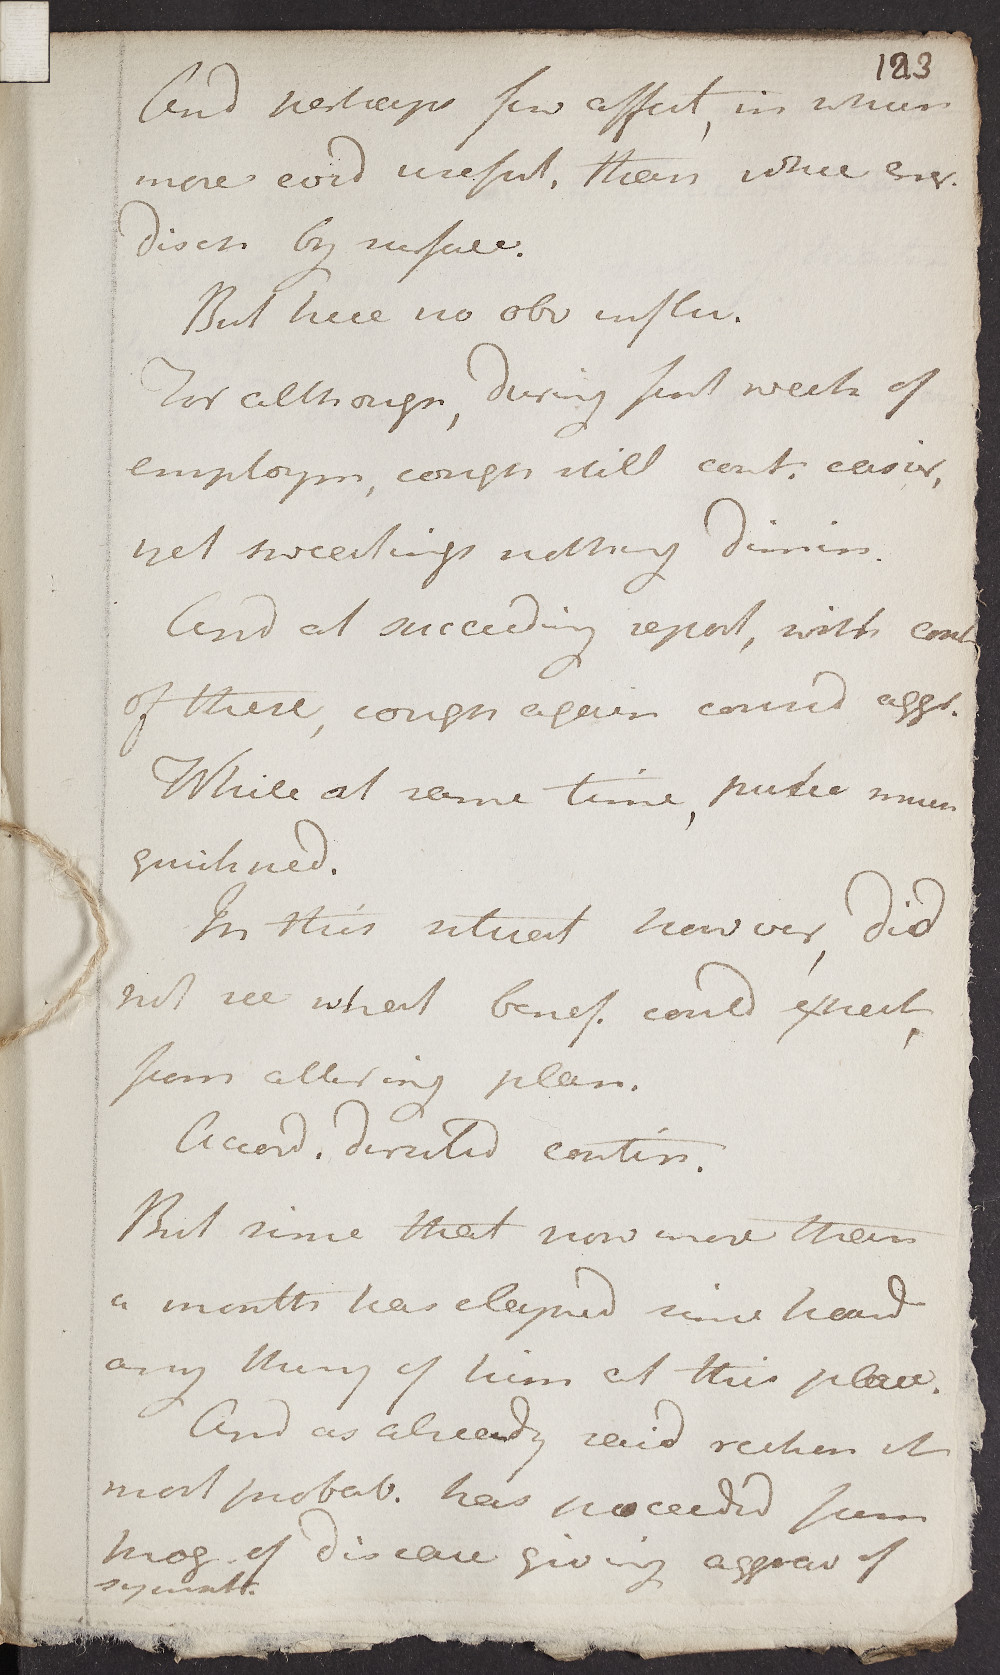 123
And perhaps few affect, in whch
more evid useful, than where
disch by surface.
But here no obv influ.
For although, during first week of
employm, cough still cont. easier,
yet sweatings nothing dimin.
And at succeeding report, with cont
of these, cough again consid aggr.
While at same time, pulse much
quickned.
In this situat however, did
not see what benef. could expect,
from altering plan.
Accord. directed contin.
But since that now more than
a month has elapsed since heard
any thing of him at this place.
And as already said reckon it
most probab. has proceeded from
prog. of disease giving aggrav of
sympt.